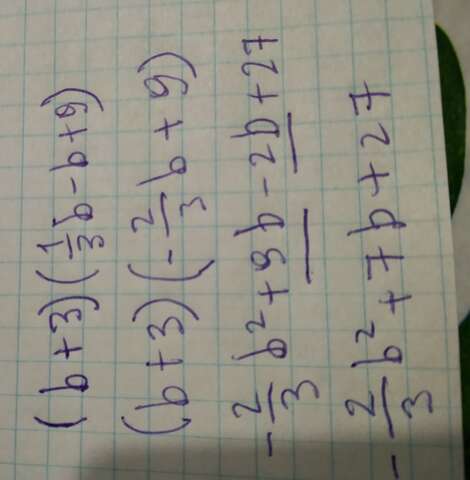 (b+3)(1/3b-b+9)
(b+3)(-2/3b+9)
-2/3b²+9b-2b+27
-2/3b²+7b+27